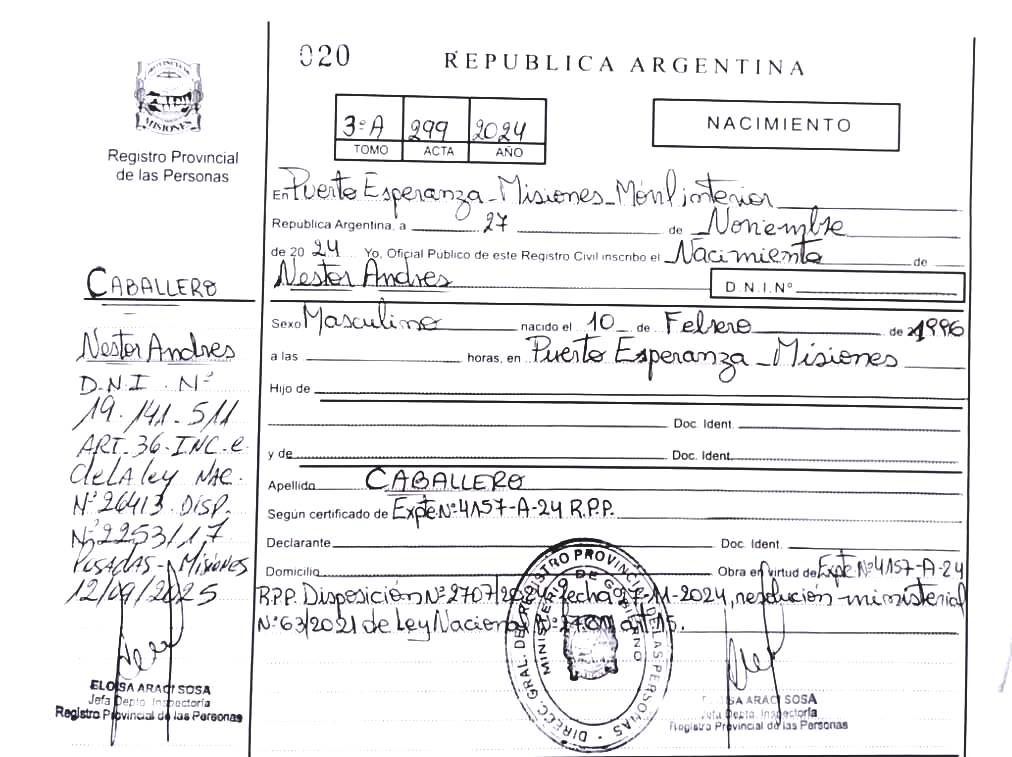 020
REPUBLICA ARGENTINA
PROVINCIA DE
MISIONES
Registro Provincial
de las Personas
3º A 299 2024
TOMO ACTA AÑO
NACIMIENTO
En Puerto Esperanza - Misiones - Móvil interior
Republica Argentina, a 27 de Noviembre
de 2024 Yo, Oficial Público de este Registro Civil inscribo el Nacimiento de
Nestor Andres D.N.I.Nº
Sexo Masculino nacido el 10 de Febrero de 1996
a las horas, en Puerto Esperanza - Misiones
Hijo de
Doc. Ident.
y de Doc. Ident.
Apellido CABALLERO
Según certificado de Expte Nº 4157-A-24 R.P.P.
Declarante Doc. Ident.
Domicilio Obra en virtud de Expte Nº 4157-A-24
R.P.P. Disposición Nº 2707/2024 fecha 27-11-2024, resolución ministerial
Nº 63/2021 de Ley Nacional Nº art 15.
DIRECC. GRAL. DEL REGISTRO PROVINCIAL DE LAS PERSONAS
MINISTERIO DE GOBIERNO
SA ARACI SOSA
Jefa Depto. Inspectoría
Registro Provincial de las Personas
CABALLERO
Nestor Andres
D.N.I. Nº
19.141.511
ART. 36. INC. e
de LA ley NAC.
Nº 26413. DISP.
Nº 2253/17
POSADAS - Misiones
12/09/2025
ELOISA ARACI SOSA
Jefa Depto. Inspectoría
Registro Provincial de las Personas